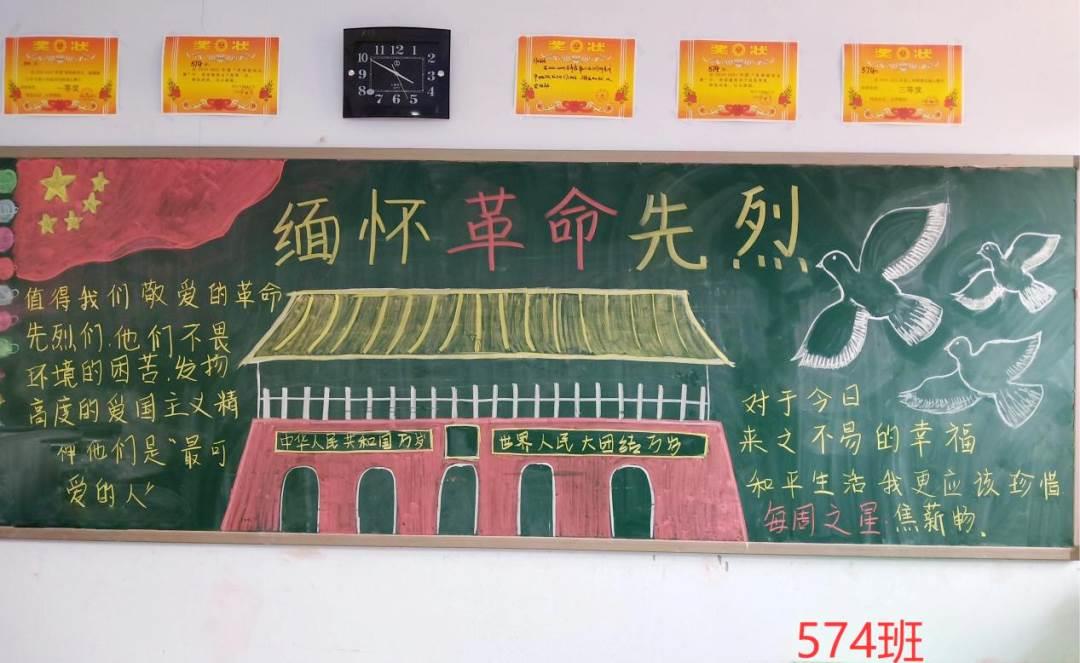 奖状
奖状
奖状
奖状
奖状
574
574
574
一等奖
三等奖
10 11 12 1
2
9 3
8 4
7 6 5
缅怀革命先烈
值得我们敬爱的革命
先烈们.他们不畏
环境的困苦.发扬
高度的爱国主义精
神他们是“最可
爱的人”
中华人民共和国万岁
世界人民大团结万岁
对于今日
来之不易的幸福
和平生活我更应该珍惜
每周之星.焦薪畅.
574班